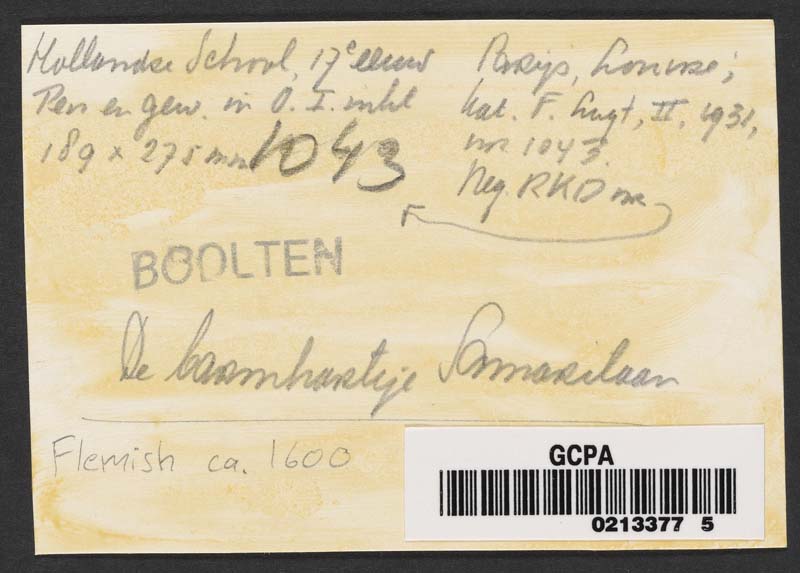 Hollandse School, 17e eeuw
Pen en gew. in O. I. inkt
189 x 275 mm
1043
Parijs, Louvre;
Kat. F. Lugt, II, 1931,
nr 1043.
Neg. RKD nr
BOOLTEN
De barmhartige Samaritaan
Flemish ca. 1600
GCPA
0213377 5